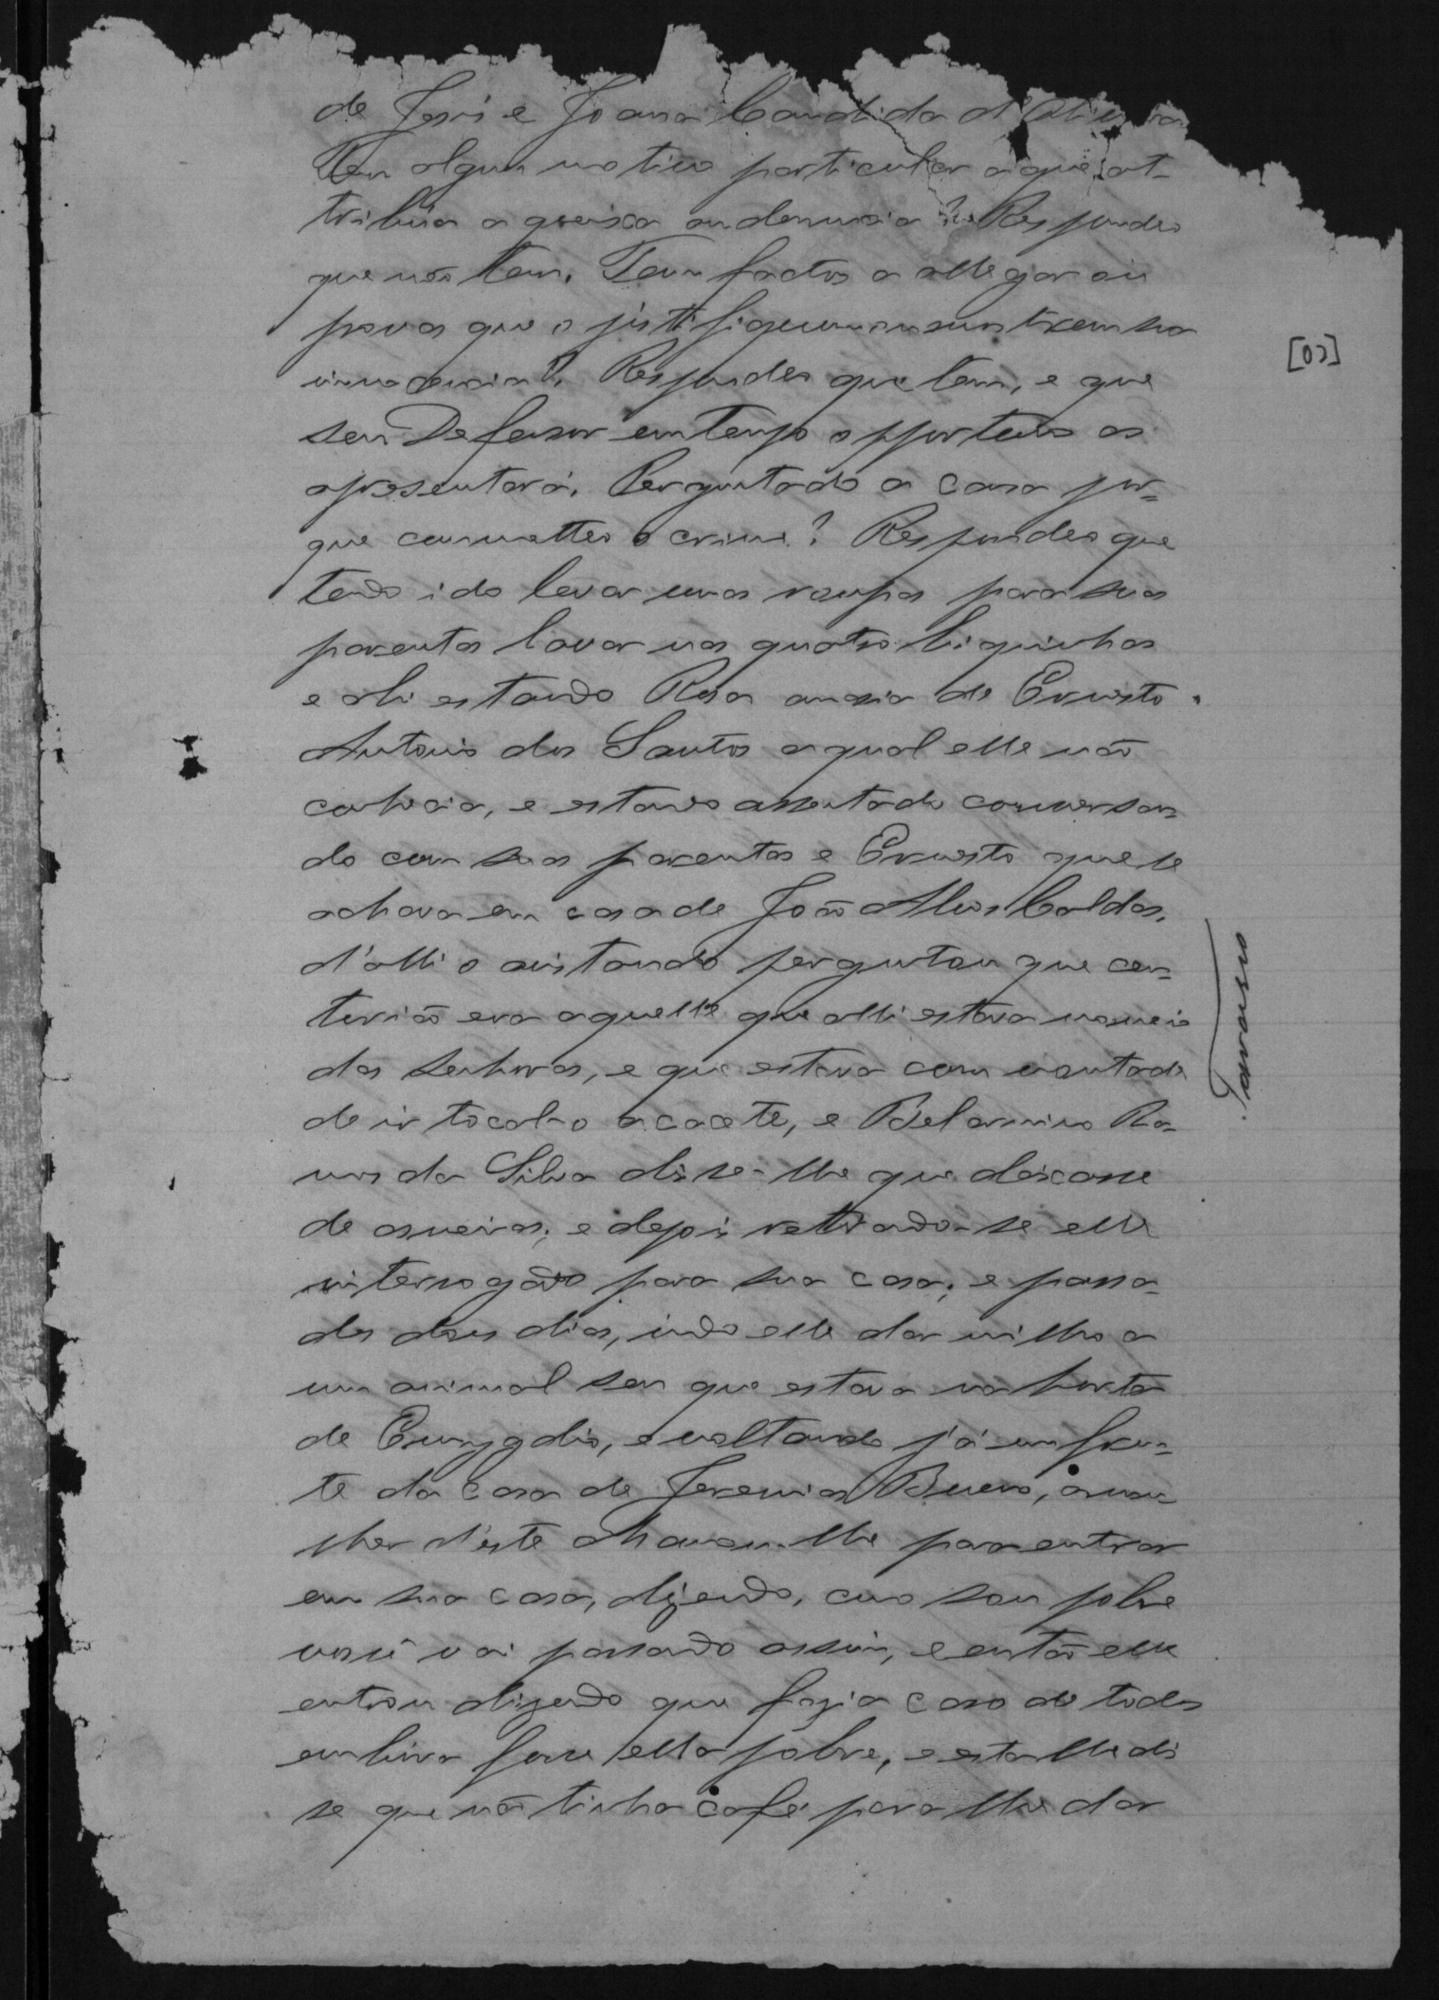 de Jesus e Joanna Candida d'Oliveira
Tem algum motivo particular a que at-
tribúa a queixa ou denuncia? Respondeo
que não tem. Tem factos a allegar ou
provas que o justifiquem ou mostrem sua
innocencia? Respondeo que tem, e que
seu Defensor em tempo opportuno as
apresentará. Perguntado a causa por-
que commetteo o crime? Respondeo que
tendo ido levar umas roupas para suas
parentas lavar nas quatro biquinhas
e ali estando Rosa amasia de Ernesto
Antonio dos Santos a qual elle não
conhecia, e estando assentado conversan-
do com suas parentas e Ernesto que se
achava em casa de João Alves Caldas,
d'alli o avistando perguntou que
era aquelle que alli estava no meio
das senhoras, e que estava com vontade
de ir tocal-o a cacete, e Belarmino Ra-
mos da Silva disse-lhe que deixasse
de asneiras; e depois retirando-se elle
interrogado para sua casa; e passa-
dos dous dias, indo elle dar milho a
um animal seu que estava na horta
de Emygdio, e voltando já em fren-
te da casa de Jeremias Bueno, a mu-
lher d'este chamou-lhe para entrar
em sua casa, dizendo, como sou pobre
você vai passando assim, e então elle
entrou dizendo que fazia caso de todos
embora fosse ella pobre, e esta lhe dis
se que não tinha café para lhe dar
[03]
Tavares